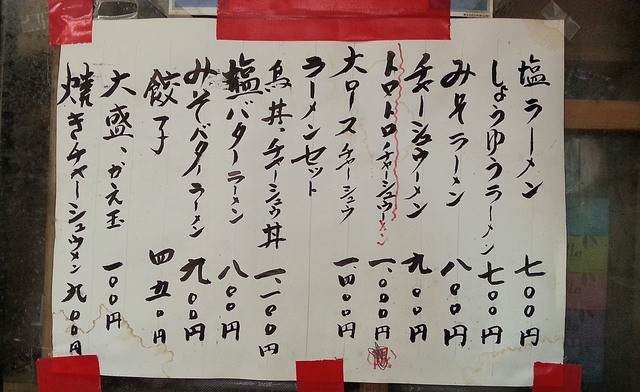 塩ラーメン 七〇〇円
しょうゆうラーメン 七〇〇円
みそラーメン 八〇〇円
チャーシュウーメン 九〇〇円
トロトロチャーシュウーメン 一、〇〇〇円
大ロースチャーシュウ 一、四〇〇円
ラーメンセット
鳥丼、チャーシュウ丼 一、一〇〇円
塩バターラーメン 八〇〇円
みそバターラーメン 九〇〇円
餃子 四五〇円
大盛、かえ玉 一〇〇円
焼きチャーシュウメン 九〇〇円